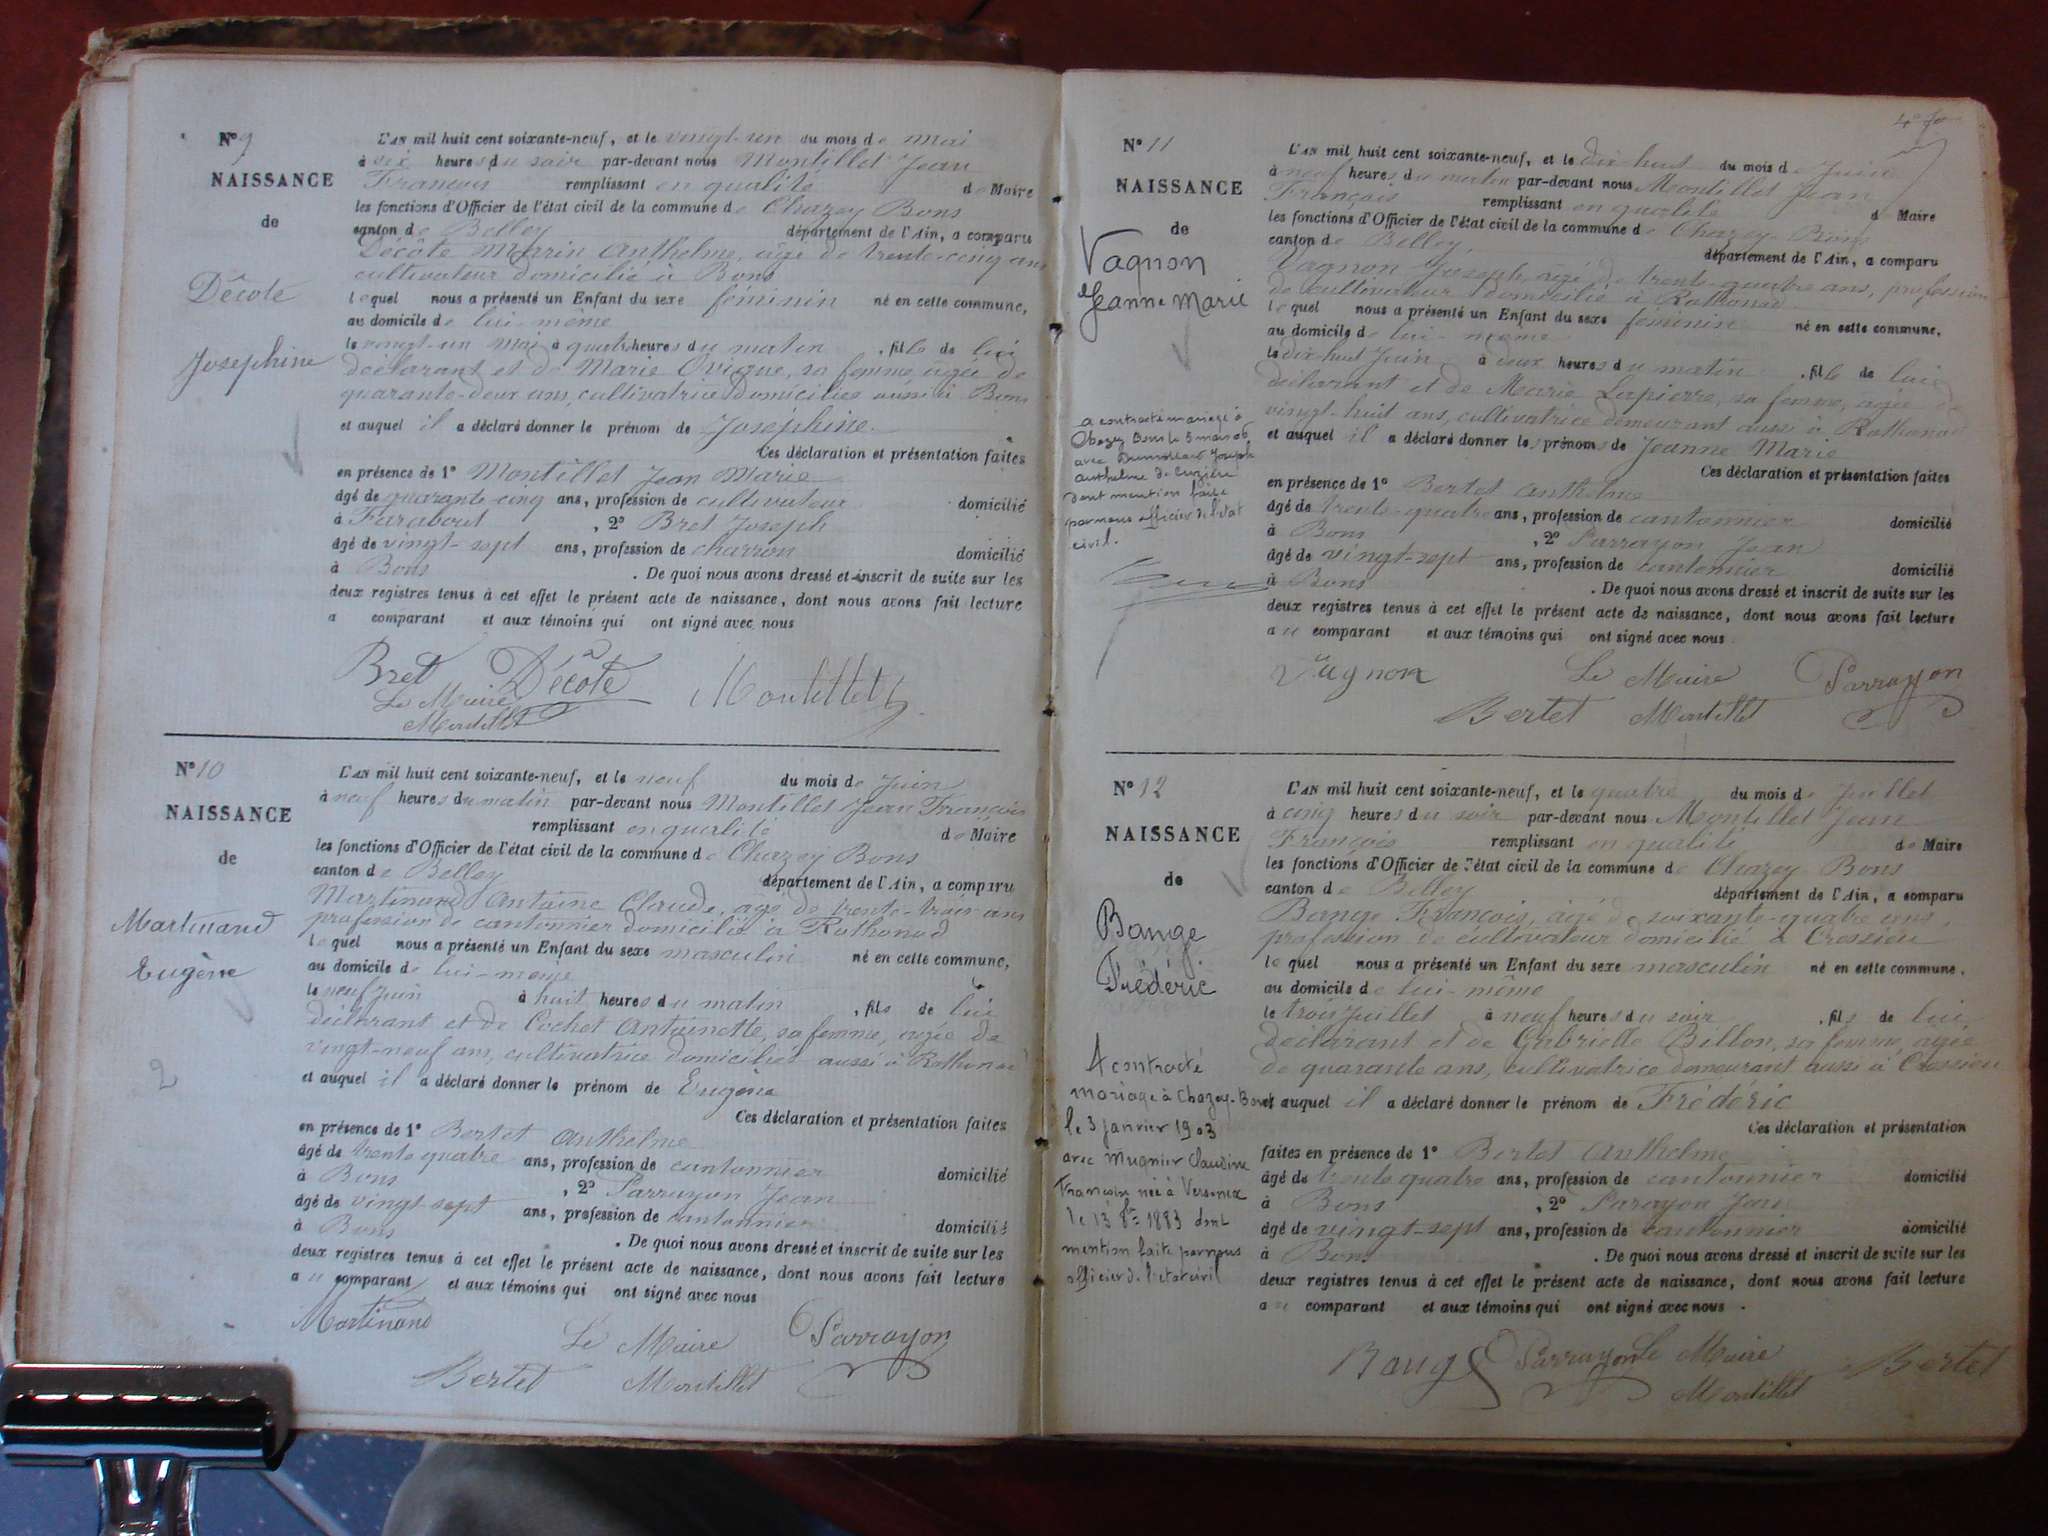 N° 9
NAISSANCE
de
Décote
Joséphine
L'AN mil huit cent soixante-neuf, et le vingt-un du mois de mai
à six heures du soir par-devant nous Montillet Jean
François remplissant en qualité de Maire
les fonctions d'Officier de l'état civil de la commune de Chazey Bons
canton de Belley département de l'Ain, a comparu
Décôte Marin Anthelme, âgé de trente-cinq ans
cultivateur domicilié à Bons
lequel nous a présenté un Enfant du sexe féminin né en cette commune,
au domicile de lui-même
le vingt-un mai à quatre heures du matin , fille de lui
déclarant et de Marie sa femme, agée de
quarante-deux ans, cultivatrice domiciliée aussi à Bons
et auquel il a déclaré donner le prénom de Joséphine.
Ces déclaration et présentation faites
en présence de 1° Montillet Jean Marie
âgé de quarante-cinq ans, profession de cultivateur domicilié
à Farabout , 2° Bret Joseph
âgé de vingt-sept ans, profession de charron domicilié
à Bons . De quoi nous avons dressé et inscrit de suite sur les
deux registres tenus à cet effet le présent acte de naissance, dont nous avons fait lecture
a comparant et aux témoins qui ont signé avec nous
Bret Décote Montillet
Le Maire
Montillet
N° 10
NAISSANCE
de
Martinand
Eugène
2
L'AN mil huit cent soixante-neuf, et le neuf du mois de Juin
à neuf heures du matin par-devant nous Montillet Jean François
remplissant en qualité de Maire
les fonctions d'Officier de l'état civil de la commune de Chazey Bons
canton de Belley département de l'Ain, a comparu
Martinand Antoine Claude, âgé de trente-trois ans
profession de cantonnier domicilié à Rothonod
lequel nous a présenté un Enfant du sexe masculin né en cette commune,
au domicile de lui-même
le neuf Juin à huit heures du matin , fils de lui
déclarant et de Cochet Antoinette, sa femme, agée de
vingt-neuf ans, cultivatrice domiciliée aussi à Rothonod
et auquel il a déclaré donner le prénom de Eugène
Ces déclaration et présentation faites
en présence de 1° Bertet Anthelme
âgé de trente quatre ans, profession de cantonnier domicilié
à Bons , 2° Parrayon Jean
âgé de vingt-sept ans, profession de cantonnier domicilié
à Bons . De quoi nous avons dressé et inscrit de suite sur les
deux registres tenus à cet effet le présent acte de naissance, dont nous avons fait lecture
au comparant et aux témoins qui ont signé avec nous
Martinand Le Maire Parrayon
Bertet Montillet
N° 11
NAISSANCE
de
Vagnon
Jeanne Marie
a contracté mariage à
Chazey Bons le 5 mars 06
avec Joseph
Anthelme de
dont mention faite
par nous officier de l'état
civil.
L'AN mil huit cent soixante-neuf, et le dix-huit du mois de Juin
à neuf heures du matin par-devant nous Montillet Jean
François remplissant en qualité de Maire
les fonctions d'Officier de l'état civil de la commune de Chazey-Bons
canton de Belley, département de l'Ain, a comparu
Vagnon Joseph, âgé de trente-quatre ans, profession
de cultivateur domicilié à Rothonod
lequel nous a présenté un Enfant du sexe féminin né en cette commune,
au domicile de lui-même
le dix-huit Juin à deux heures du matin , fille de lui
déclarant et de Marie Lapierre, sa femme, agée de
vingt-huit ans, cultivatrice demeurant aussi à Rothonod
et auquel il a déclaré donner les prénoms de Jeanne Marie
Ces déclaration et présentation faites
en présence de 1° Bertet Anthelme
âgé de trente-quatre ans, profession de cantonnier domicilié
à Bons , 2° Parrayon Jean
âgé de vingt-sept ans, profession de cantonnier domicilié
à Bons . De quoi nous avons dressé et inscrit de suite sur les
deux registres tenus à cet effet le présent acte de naissance, dont nous avons fait lecture
au comparant et aux témoins qui ont signé avec nous
Vagnon Le Maire Parrayon
Bertet Montillet
N° 12
NAISSANCE
de
Bange
Frédéric
A contracté
mariage à Chazey-Bons
le 3 janvier 1903
avec Mugnier Claudine
Françoise née à Virieux
le 13 8bre 1883 dont
mention faite par nous
officier de l'état civil
L'AN mil huit cent soixante-neuf, et le quatre du mois de Juillet
à cinq heures du soir par-devant nous Montillet Jean
François remplissant en qualité de Maire
les fonctions d'Officier de l'état civil de la commune de Chazey Bons
canton de Belley département de l'Ain, a comparu
Bange François, âgé de soixante-quatre ans,
profession de cultivateur domicilié à Cressieu
lequel nous a présenté un Enfant du sexe masculin né en cette commune,
au domicile de lui-même
le trois Juillet à neuf heures du soir , fils de lui
déclarant et de Gabrielle Billon, sa femme, agée
de quarante ans, cultivatrice demeurant aussi à Cressieu
et auquel il a déclaré donner le prénom de Frédéric
Ces déclaration et présentation
faites en présence de 1° Bertet Anthelme
âgé de trente quatre ans, profession de cantonnier domicilié
à Bons , 2° Parayon Jean
âgé de vingt-sept ans, profession de cantonnier domicilié
à Bons . De quoi nous avons dressé et inscrit de suite sur les
deux registres tenus à cet effet le présent acte de naissance, dont nous avons fait lecture
au comparant et aux témoins qui ont signé avec nous .
Bange Parrayon Le Maire Bertet
Montillet